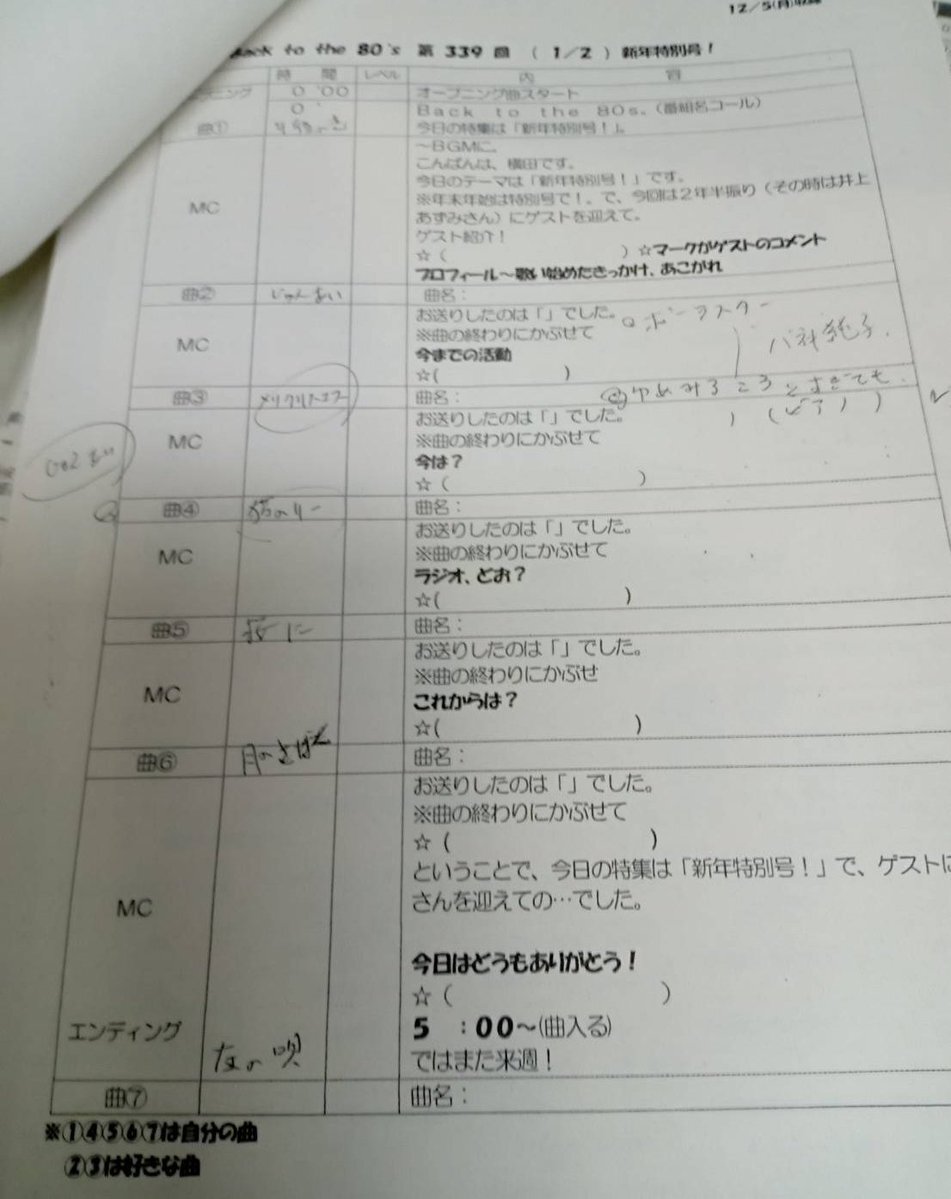 12/5(月)収録
Back to the 80's 第 339 回 ( 1/2 ) 新年特別号！
時 間 レベル 内 容
0 '00 オープニング曲スタート
0 ' Back to the 80s. (番組名コール)
曲① 今日の特集は「新年特別号！」。
～BGMに。
こんばんは、横田です。
今日のテーマは「新年特別号！」です。
※年末年始は特別号で！。で、今回は２年半振り（その時は井上
MC
あずみさん）にゲストを迎えて。
ゲスト紹介！
☆（ ）☆マークがゲストのコメント
プロフィール～歌い始めたきっかけ、あこがれ
曲② じゅんあい 曲名：
お送りしたのは「」でした。
※曲の終わりにかぶせて
MC
今までの活動
☆( )
曲③ メリクリ 曲名：
②ゆめみるころをすぎても
お送りしたのは「」でした。
(ピアノ)
MC
※曲の終わりにかぶせて
今は？
☆（ ）
曲④ 曲名：
お送りしたのは「」でした。
MC
※曲の終わりにかぶせて
ラジオ、どお？
☆( )
曲⑤ 桜に 曲名：
お送りしたのは「」でした。
※曲の終わりにかぶせ
MC
これからは？
☆( )
曲⑥ 月のさばく 曲名：
お送りしたのは「」でした。
※曲の終わりにかぶせて
☆（ ）
ということで、今日の特集は「新年特別号！」で、ゲストに
MC
さんを迎えての…でした。
今日はどうもありがとう！
☆（ ）
エンディング
5 ：00～(曲入る)
の唄
ではまた来週！
曲⑦ 曲名：
※①④⑤⑥⑦は自分の曲
②③は好きな曲